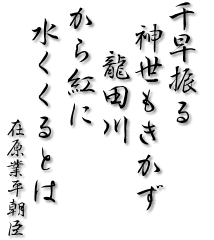 千早振る
神世もきかず
龍田川
から紅に
水くくるとは
在原業平朝臣